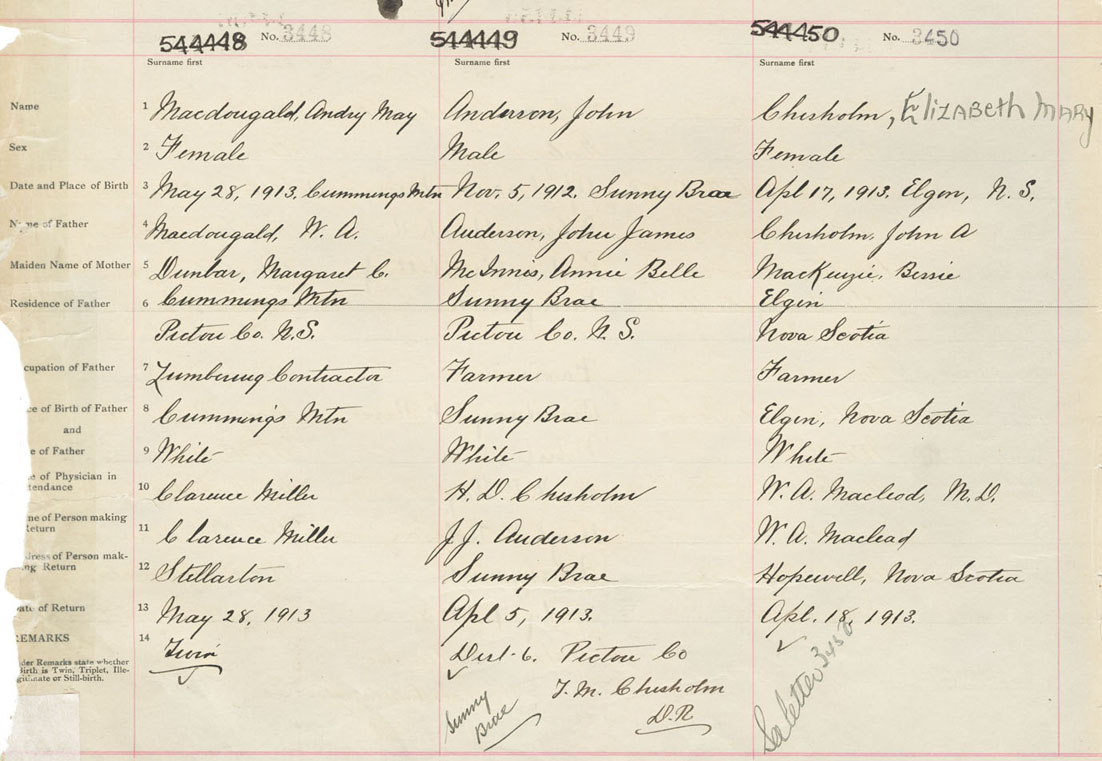 544448 No. 3448 544449 No. 3449 544450 No. 3450
Surname first Surname first Surname first
Name 1 Macdougald, Andry May Anderson, John Chisholm, Elizabeth Mary
Sex 2 Female Male Female
Date and Place of Birth 3 May 28, 1913. Cummings Mtn Nov. 5, 1912. Sunny Brae Apl 17, 1913. Elgin, N. S.
Name of Father 4 Macdougald, W. A. Anderson, John James Chisholm, John A
Maiden Name of Mother 5 Dunbar, Margaret C. McInnis, Annie Belle MacKenzie, Bessie
Residence of Father 6 Cummings Mtn Sunny Brae Elgin
Pictou Co. N.S. Pictou Co. N. S. Nova Scotia
cupation of Father 7 Lumbering Contractor Farmer Farmer
ce of Birth of Father 8 Cummings Mtn Sunny Brae Elgin, Nova Scotia
and
e of Father 9 White White White
e of Physician in
tendance 10 Clarence Miller H. D. Chisholm W. A. Macleod, M.D.
ne of Person making
Return 11 Clarence Miller J. J. Anderson W. A. Macleod
dress of Person mak-
ng Return 12 Stellarton Sunny Brae Hopewell, Nova Scotia
ate of Return 13 May 28, 1913 Apl 5, 1913. Apl. 18, 1913.
EMARKS 14 Twin Dist. 6. Pictou Co
der Remarks state whether
Birth is Twin, Triplet, Ille-
gitimate or Still-birth.
T. M. Chisholm
D.R
Sunny
Brae
See letter 3450